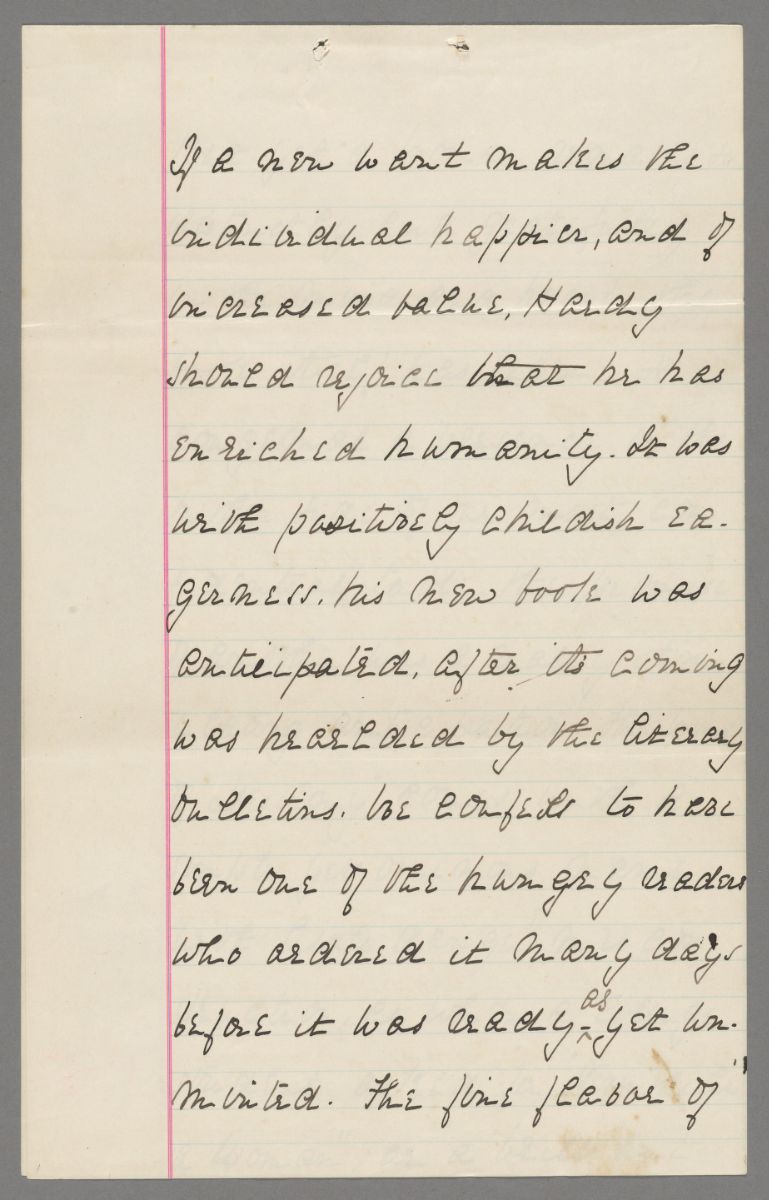 If a new want makes the
individual happier, and of
increased value, Hardy
should rejoice that he has
enriched humanity. It was
with positively childish ea-
gerness, his new book was
anticipated, after its coming
was hearlded by the literary
bulletins. We confess to have
been one of the hungry readers
who ordered it many days
before it was ready - as yet un-
minted. The fine flavor of